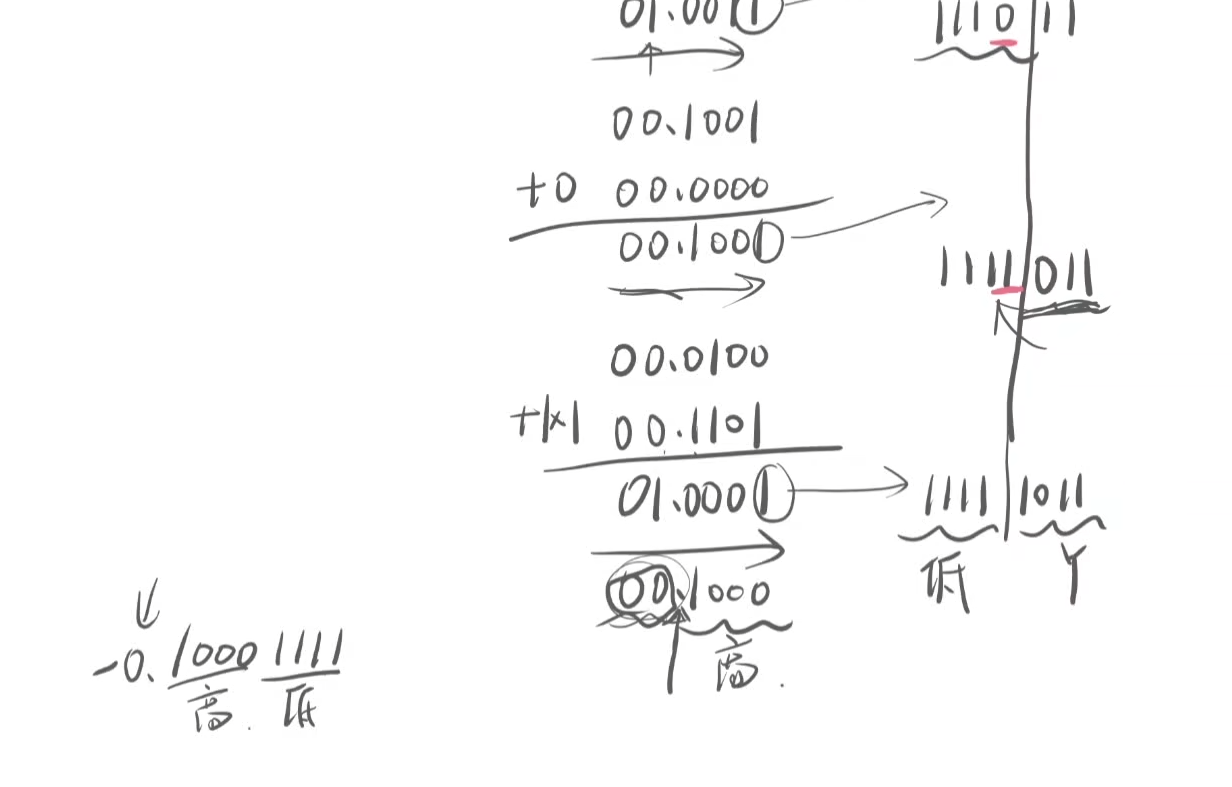 01.001① 1110|11
00.1001
+0 00.0000
00.100①
1111|011
00.0100
+|x| 00.1101
01.000① 1111|1011
低 Y
00.1000
高.
-0.1000 1111
高. 低